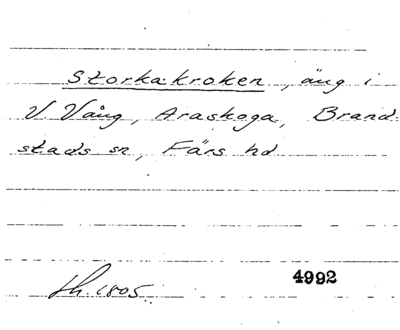 Storkakroken, äng i
V. Vång, Araskoga, Brand-
stads sn, Färs hd
Sk. 1805.
4992